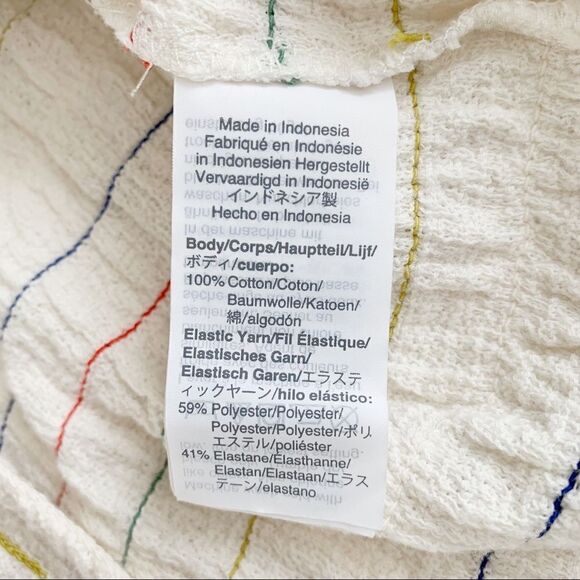 Made in Indonesia
Fabriqué en Indonésie
in Indonesien Hergestellt
Vervaardigd in Indonesië
インドネシア製
Hecho en Indonesia
Body/Corps/Hauptteil/Lijf/
ボディ/cuerpo:
100% Cotton/Coton/
Baumwolle/Katoen/
綿/algodón
Elastic Yarn/Fil Élastique/
Elastisches Garn/
Elastisch Garen/エラステ
ィックヤーン/hilo elástico:
59% Polyester/Polyester/
Polyester/Polyester/ポリ
エステル/poliéster
41% Elastane/Élasthanne/
Elastan/Elastaan/エラス
テーン/elastano